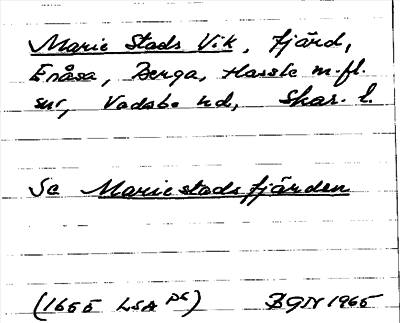 Marie Stads Vik, fjärd,
Enåsa, Berga, Hassle m.fl.
snr, Vadsbo hd, Skar. l.
Se Mariestadsfjärden
(1655 LSA p6) BGN 1965